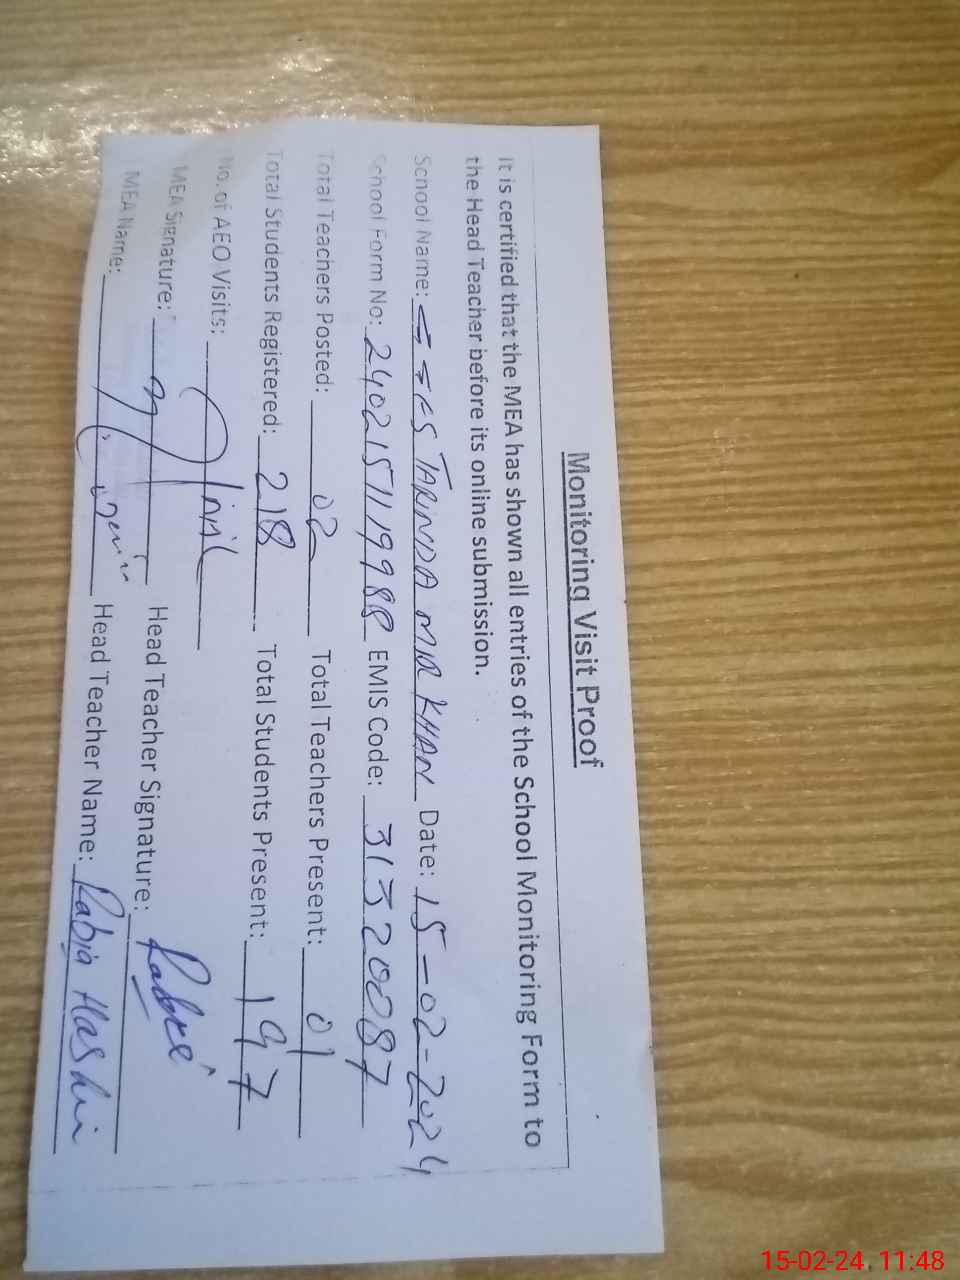 Monitoring Visit Proof
It is certified that the MEA has shown all entries of the School Monitoring Form to
the Head Teacher before its online submission.
School Name: GGES TARINDA MIR KHAN Date: 15-02-2024
School Form No: 2402151119988 EMIS Code: 31320087
Total Teachers Posted: 02 Total Teachers Present: 01
Total Students Registered: 218 Total Students Present: 197
No. of AEO Visits:
MEA Signature: Head Teacher Signature:
MEA Name: Head Teacher Name: Rabia Hashmi
15-02-24, 11:48